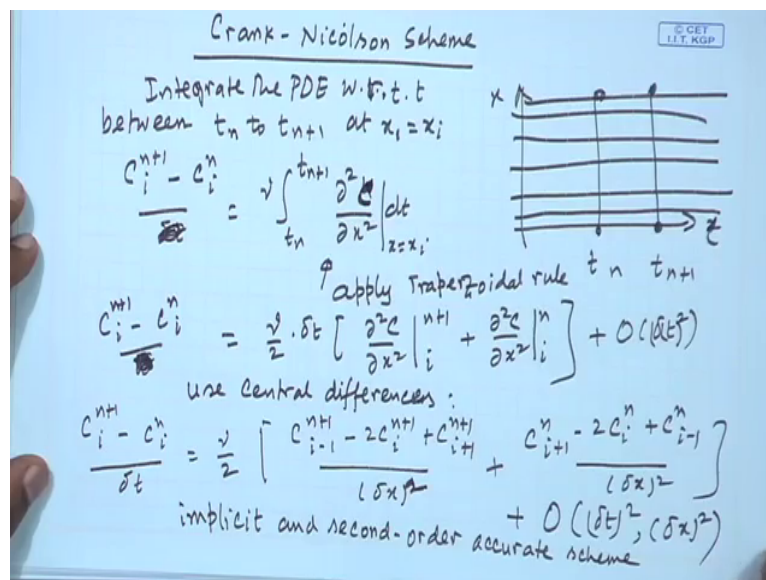 Crank-Nicolson Scheme
© CET
I.I.T. KGP
Integrate the PDE w.r.t. t
between t_n to t_{n+1} at x_i = x_i
C_i^{n+1} - C_i^n = ν ∫_{t_n}^{t_{n+1}} ∂²C/∂x² |_{x=x_i} dt
x
t
t_n t_{n+1}
↑ apply Traperzoidal rule
C_i^{n+1} - C_i^n = ν/2 · δt [ ∂²C/∂x² |_i^{n+1} + ∂²C/∂x² |_i^n ] + O((δt)²)
use central differences:
(C_i^{n+1} - C_i^n)/δt = ν/2 [ (C_{i-1}^{n+1} - 2C_i^{n+1} + C_{i+1}^{n+1})/(δx)² + (C_{i+1}^n - 2C_i^n + C_{i-1}^n)/(δx)² ]
+ O((δt)², (δx)²)
implicit and second-order accurate scheme